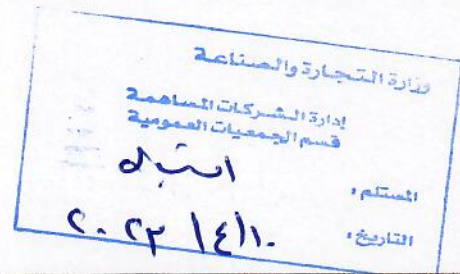 وزارة التجارة والصناعة
إدارة الشركات المساهمة
قسم الجمعيات العمومية
المستلم :
التاريخ : ٢٠٢٣/٤/١٠